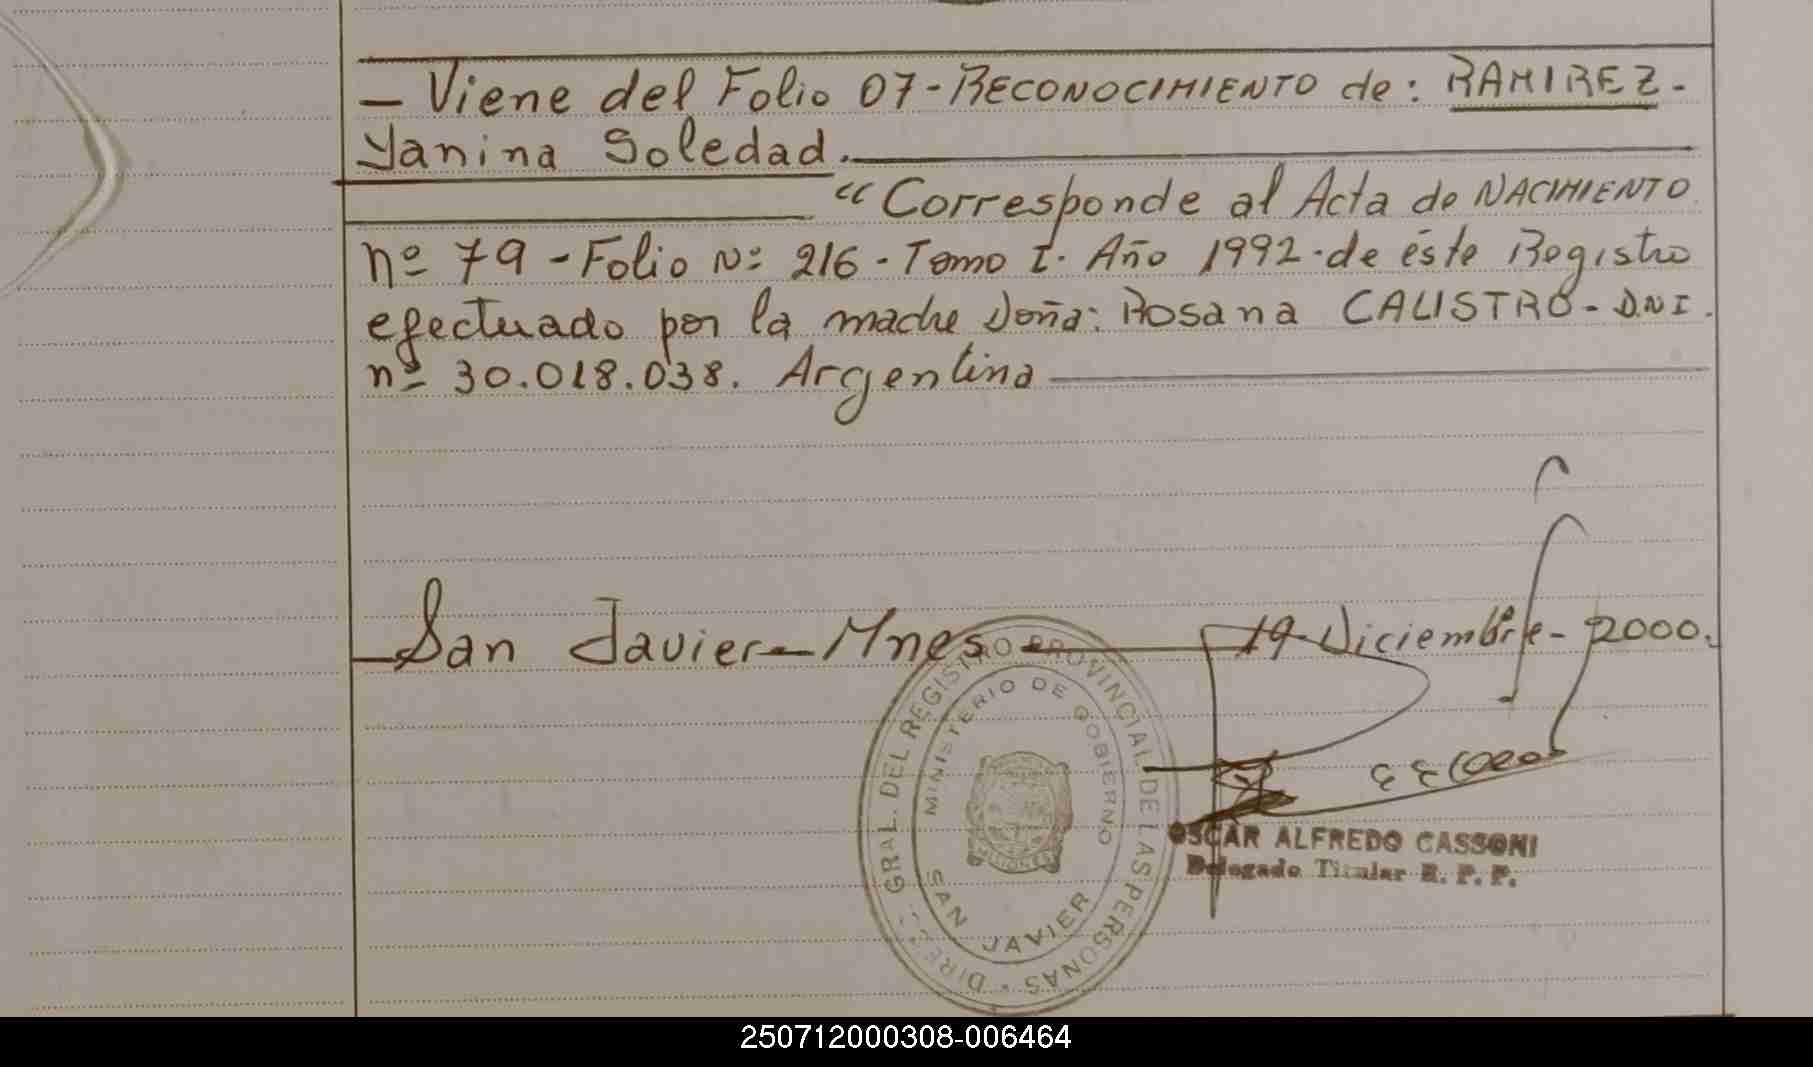 - Viene del Folio 07 - RECONOCIMIENTO de: RAMIREZ -
Yanina Soledad.
"Corresponde al Acta de NACIMIENTO
nº 79 - Folio Nº 216 - Tomo I. Año 1992 - de éste Registro
efectuado por la madre Doña: Rosana CALISTRO - D.N.I.
nº 30.018.038. Argentina
San Javier - Mnes 19 - Diciembre - 2000.
DIREC. GRAL. DEL REGISTRO PROVINCIAL DE LAS PERSONAS
MINISTERIO DE GOBIERNO
SAN JAVIER
OSCAR ALFREDO CASSONI
Delegado Titular R. P. P.
250712000308-006464